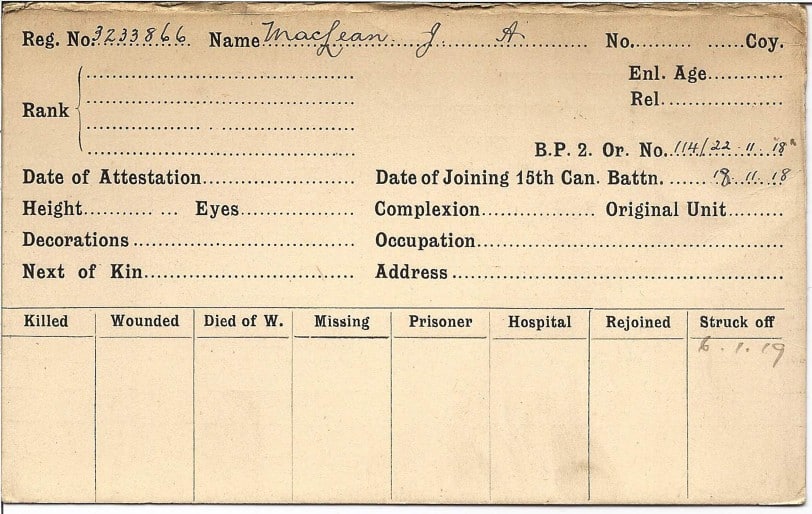 Reg. No. 3233866 Name MacLean J A No. Coy.
Enl. Age
Rel.
Rank
B.P. 2. Or. No. 114/22.11.18
Date of Attestation Date of Joining 15th Can. Battn. 18.11.18
Height Eyes Complexion Original Unit
Decorations Occupation
Next of Kin Address
Killed Wounded Died of W. Missing Prisoner Hospital Rejoined Struck off
6.1.19